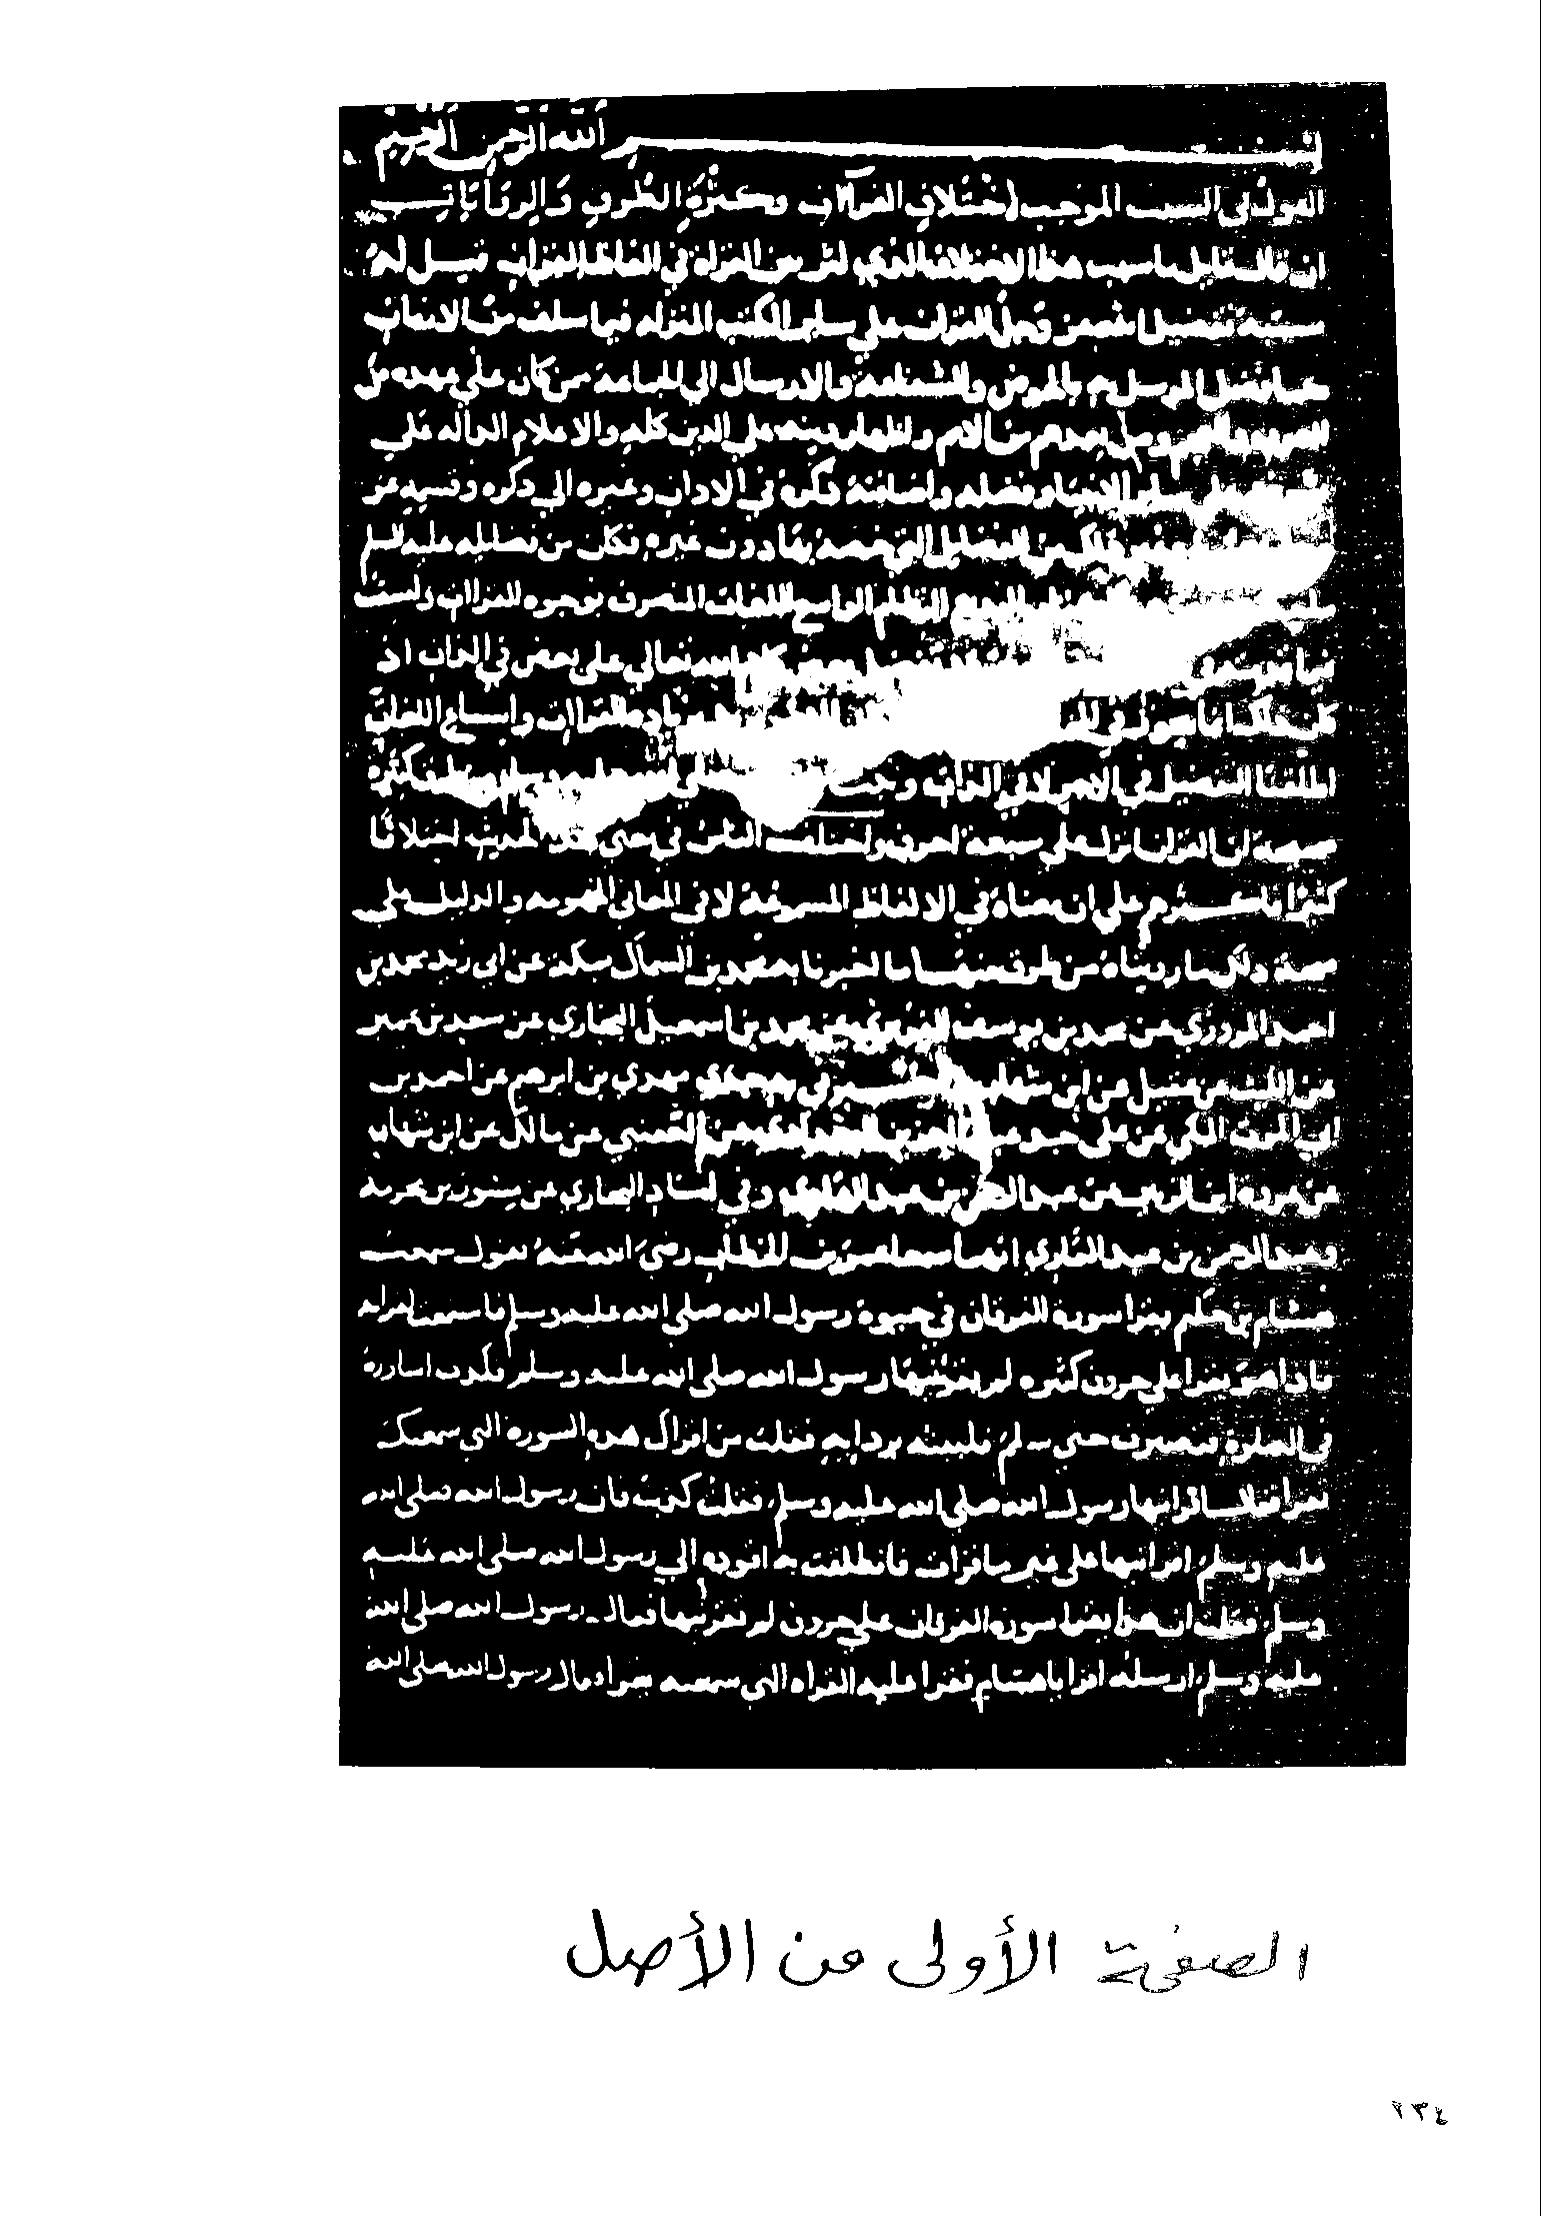 بسم الله الرحمن الرحيم
القول في السبب الموجب لاختلاف القراآت وكثرة الطرق والروايات
ان قال قايل ما سبب هذا الاختلاف الذي كثر من القراه في الفاظ القران قيل له
سببه تفضيل الله عز وجل القران على ساير الكتب المنزله فيما سلف من الازمان
كما فضل المرسل به بالحوض والشفاعة والارسال الي الجماعة من كان علي عهده من
وبعدهم من الامم واظهار دينه علي الدين كله والاعلام الداله علي
علي ساير الانبياء وفضله واضافة ذكره في الاذان وغيره الي ذكره وقسمه عز
ذلك من الفضايل التي خصه بها دون غيره فكان من فضايله عليه السلم
النظم الواسع اللغات المتصرف بوجوه القراات ولست
كلام الله تعالي على بعض في القران اذ
كل ذلك القراات واتساع اللغات
اطلقنا التفضيل في الاجر لا في القران وجات
صحيحة ان القران انزل علي سبعة احرف واختلف الناس في معنى هذا الحديث اختلافا
كثيرا فاكثرهم علي ان معناه في الالفاظ المسموعة لا في المعاني المفهومه والدليل علي
صحة ذلك ما رويناه من طرق منها ما اخبرنا به محمد بن السماك بمكة عن ابي زيد محمد بن
احمد المروزي عن محمد بن يوسف الفربري عن محمد بن اسمعيل البخاري عن سعيد بن عفير
عن الليث عن عقيل عن ابن شهاب واخبرني به جدي مهدي بن ابرهيم عن احمد بن
ابي الموت المكي عن علي بن عبد العزيز البغدادي عن القعنبي عن مالك عن ابن شهاب
عن عروه ابن الزبير عن عبد الرحمن بن عبد القاري وفي اسناد البخاري عن مسور بن مخرمة
وعبد الرحمن بن عبد القاري انهما سمعا عمر بن الخطاب رضي الله عنه يقول سمعت
هشام بن حكيم يقرا سورة الفرقان في حيوة رسول الله صلى الله عليه وسلم فاستمعت لقراته
فاذا هو يقرا علي حروف كثيره لم يقرئنيها رسول الله صلى الله عليه وسلم فكدت اساوره
في الصلوة فتصبرت حتى سلم فلببته بردايه فقلت من اقراك هذه السوره التي سمعتك
تقرا فقال اقرانيها رسول الله صلى الله عليه وسلم فقلت كذبت فان رسول الله صلى الله
عليه وسلم اقرانيها على غير ما قرات فانطلقت به اقوده الي رسول الله صلى الله عليه
وسلم فقلت ان هذا يقرا سورة الفرقان على حروف لم تقرئنيها فقال رسول الله صلى الله
عليه وسلم ارسله اقرا يا هشام فقرا عليه القراه التي سمعته يقرا فقال رسول الله صلى الله
الصفحة الأولى من الأصل
٢٣٤